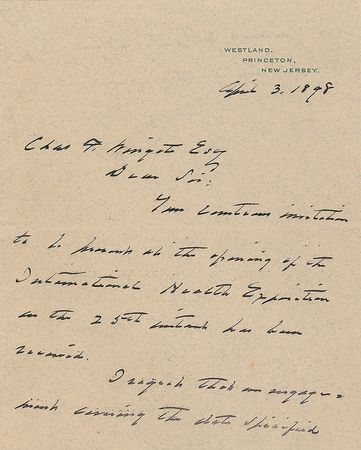 WESTLAND,
PRINCETON,
NEW JERSEY.
April 3, 1898
Chas F. Wingate Esq
Dear Sir;
Your courteous invitation
to be present at the opening of the
International Health Exposition
on the 25th instant has been
received.
I regret that an engage-
ment covering the date specified